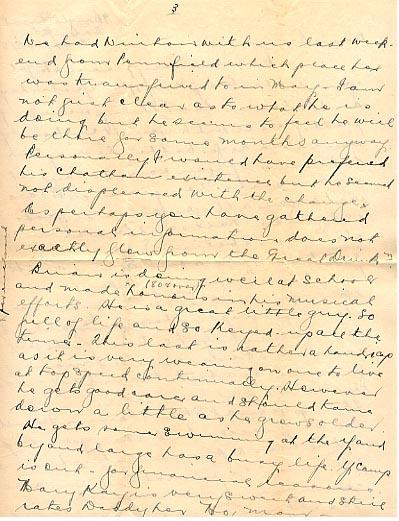 3
We had with us last week-
end from Pennfield which place he
was transferred to in May - I am
not just clear as to what he is
doing but he seems to feel he will
be there for some months anyway.
Personally I would have preferred
his Chatham existence but he seemed
not displeased with the change.
As perhaps you have gathered
personal information does not
exactly flow from the Great
is doing well at School
and made honours in his musical
efforts. He is a great little guy. So
full of life and so keyed up all the
time - this last is rather a handicap
as it is very wearing on one to live
at top speed continually. However
he gets good care and should tame
down a little as he grows older.
He gets some swimming at the Y and
by and large has a busy life. Y Camp
is out - for
Mary Kay is very sweet and still
rates Daddy her No.